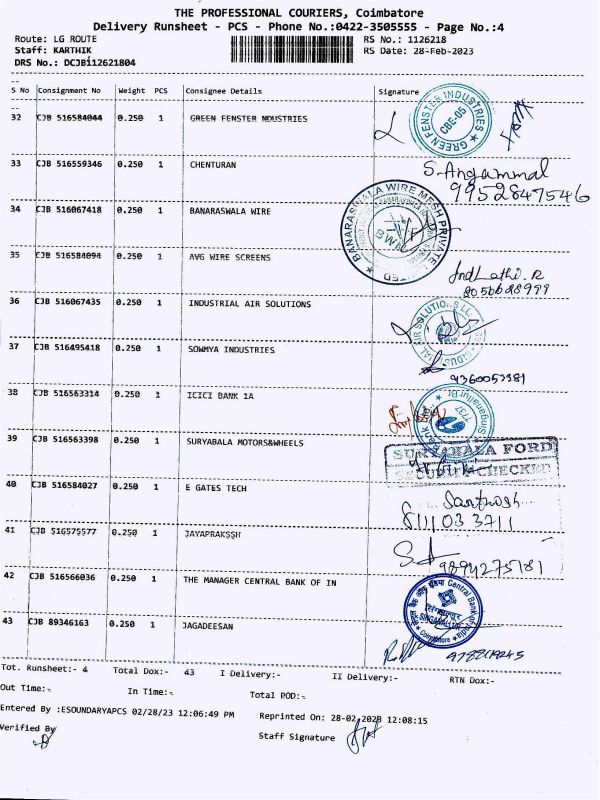 THE PROFESSIONAL COURIERS, Coimbatore
Delivery Runsheet - PCS - Phone No.:0422-3505555 - Page No.:4
Route: LG ROUTE RS No.: 1126218
Staff: KARTHIK RS Date: 28-Feb-2023
DRS No.: DCJB112621804
S No Consignment No Weight PCS Consignee Details Signature
32 CJB 516584044 0.250 1 GREEN FENSTER NDUSTRIES
GREEN FENSTER INDUSTRIES CBE-05
33 CJB 516559346 0.250 1 CHENTURAN S. Angammal
9952847546
34 CJB 516067418 0.250 1 BANARASWALA WIRE
BANARASWALA WIRE MESH PRIVATE LIMITED BWM
35 CJB 516584094 0.250 1 AVG WIRE SCREENS
36 CJB 516067435 0.250 1 INDUSTRIAL AIR SOLUTIONS
INDUSTRIAL AIR SOLUTIONS
37 CJB 516495418 0.250 1 SOWMYA INDUSTRIES
38 CJB 516563314 0.250 1 ICICI BANK 1A
39 CJB 516563398 0.250 1 SURYABALA MOTORS&WHEELS
SURYABALA FORD
SECURITY CHECKED
40 CJB 516584027 0.250 1 E GATES TECH Santhosh
811103 3711
41 CJB 516575577 0.250 1 JAYAPRAKSSH
9894275181
42 CJB 516566036 0.250 1 THE MANAGER CENTRAL BANK OF IN
सेन्ट्रल बैंक ऑफ इंडिया Central Bank of India
SINGANALLUR
Coimbatore
43 CJB 89346163 0.250 1 JAGADEESAN
Tot. Runsheet:- 4 Total Dox:- 43 I Delivery:- II Delivery:- RTN Dox:-
Out Time:- In Time:- Total POD:-
Entered By :ESOUNDARYAPCS 02/28/23 12:06:49 PM Reprinted On: 28-02-2023 12:08:15
Verified By Staff Signature